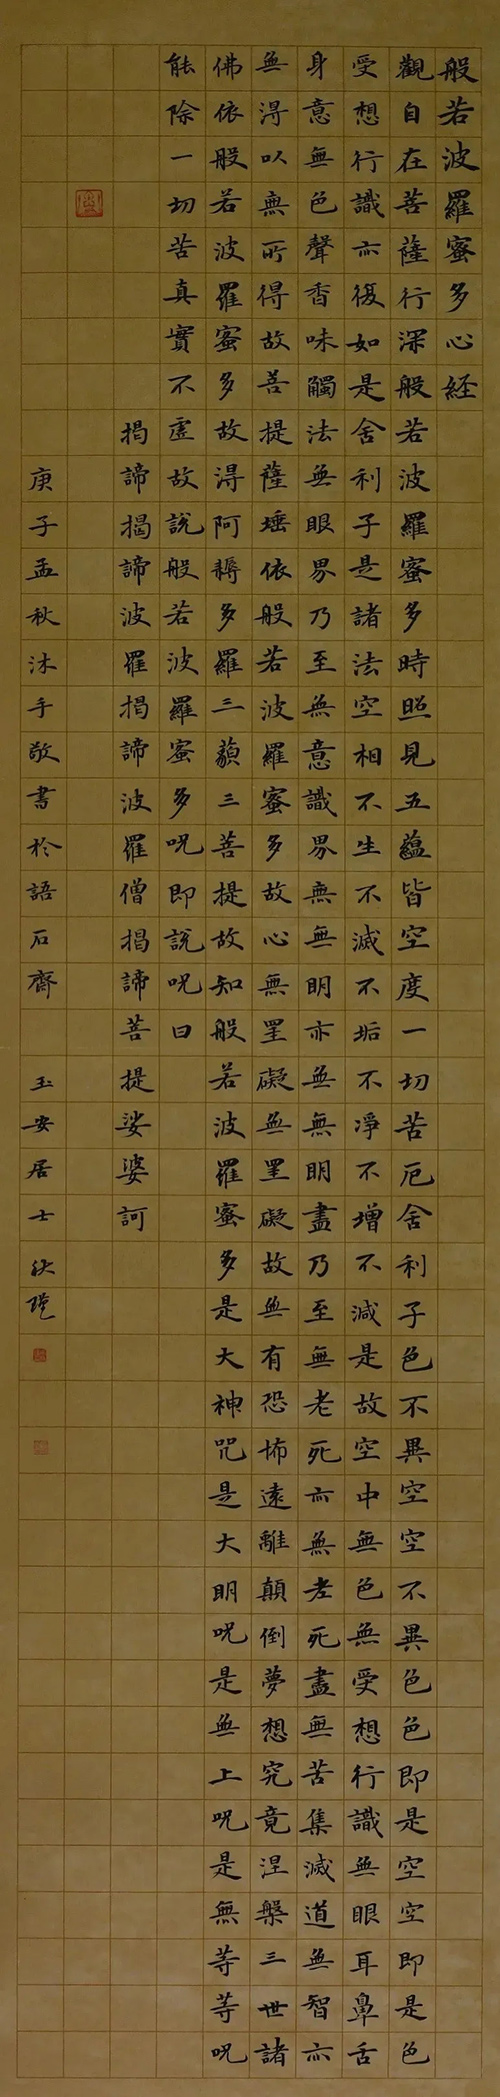 般若波羅蜜多心經
觀自在菩薩行深般若波羅蜜多時照見五蘊皆空度一切苦厄舍利子色不異空空不異色色即是空空即是色
受想行識亦復如是舍利子是諸法空相不生不滅不垢不淨不增不減是故空中無色無受想行識無眼耳鼻舌
身意無色聲香味觸法無眼界乃至無意識界無無明亦無無明盡乃至無老死亦無老死盡無苦集滅道無智亦
無得以無所得故菩提薩埵依般若波羅蜜多故心無罣礙無罣礙故無有恐怖遠離顛倒夢想究竟涅槃三世諸
佛依般若波羅蜜多故得阿耨多羅三藐三菩提故知般若波羅蜜多是大神咒是大明咒是無上咒是無等等咒
能除一切苦真實不虛故說般若波羅蜜多咒即說咒曰
揭諦揭諦波羅揭諦波羅僧揭諦菩提娑婆訶
庚子孟秋沐手敬書於語石齋 玉安居士